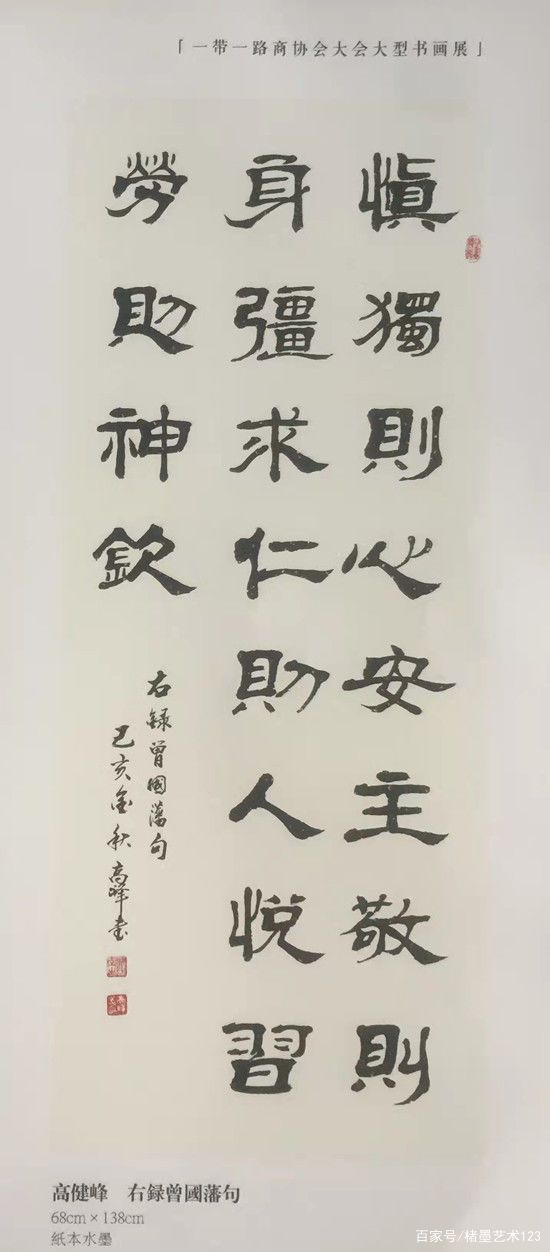 「一带一路商协会大会大型书画展」
愼獨則心安主敬則
身彊求仁則人悅習
勞則神欽
右録曾國藩句
己亥金秋高峰書
高健峰 右録曾國藩句
68cm × 138cm
紙本水墨
百家号/楮墨艺术123